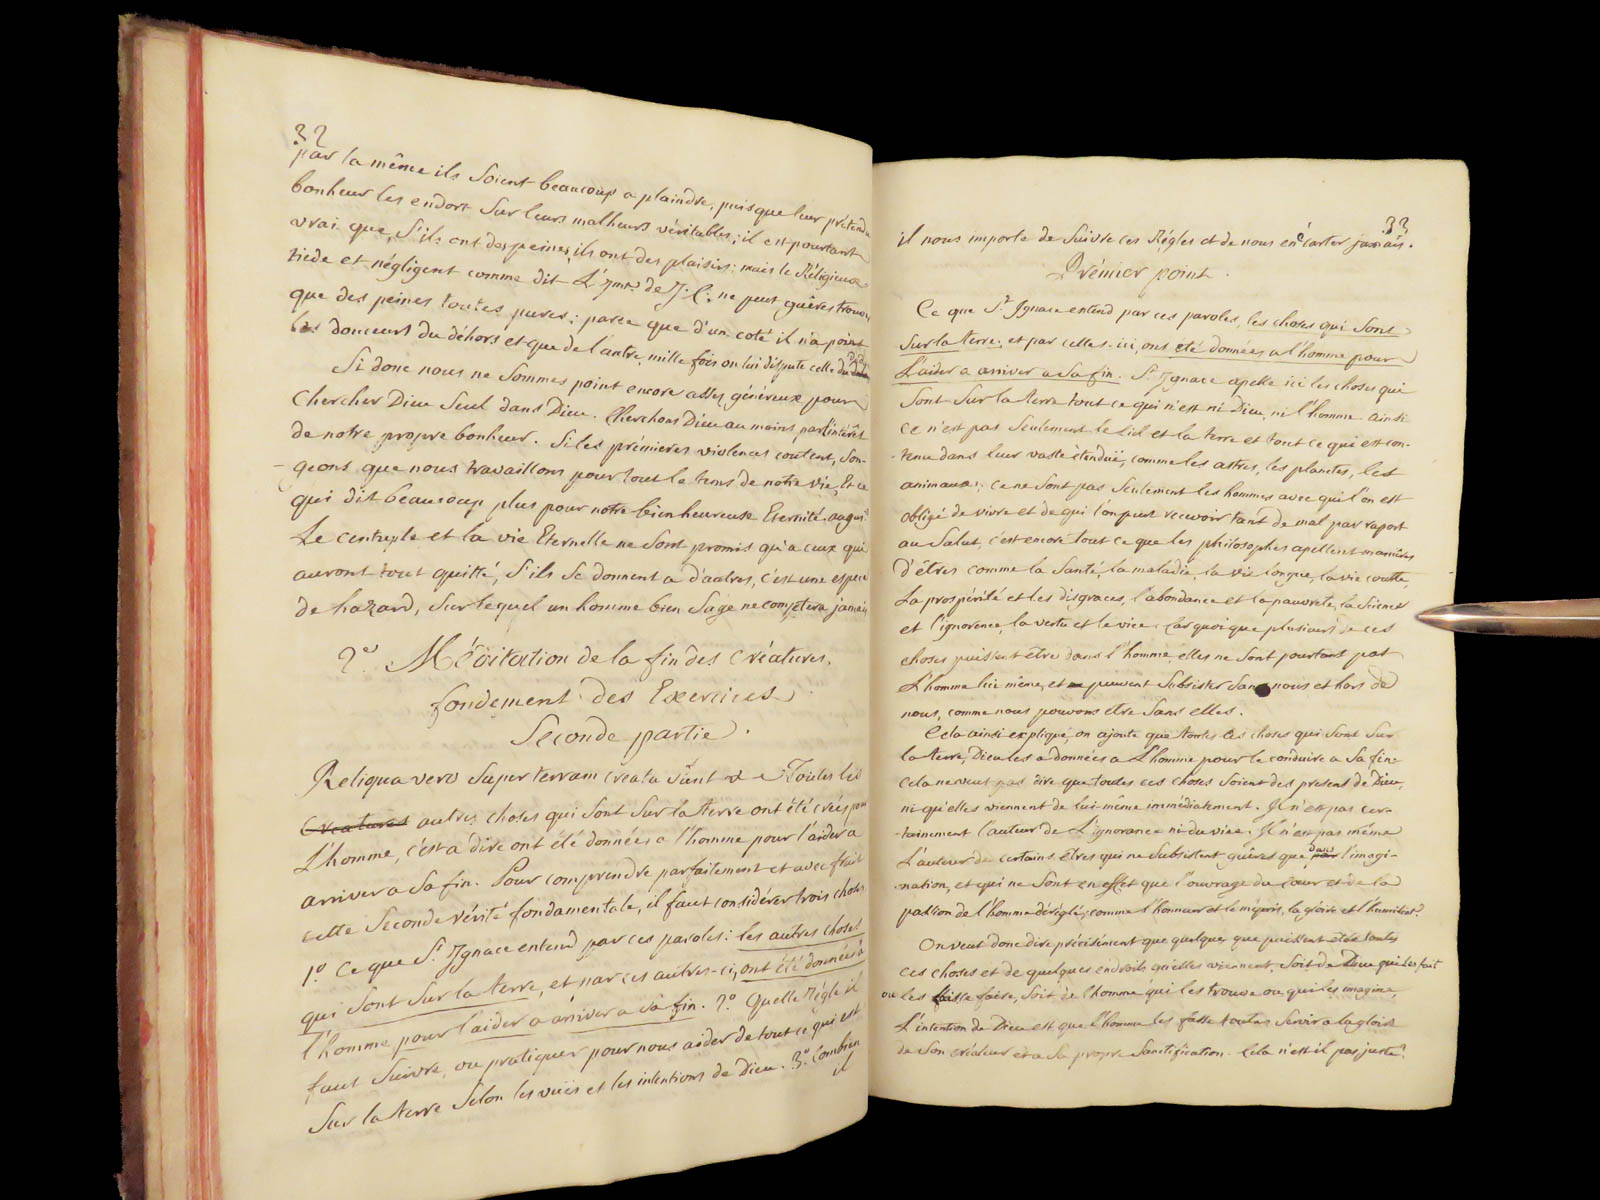 32
par la même ils Soient beaucoup a plaindre, puisque leur prétendu
bonheur les endort Sur leurs malheurs véritables; il est pourtant
vrai que, S'ils ont des peines, ils ont des plaisirs: mais le Réligieux
tiede et négligent comme dit L'Imit. de J. C. ne peut guêres trouver
que des peines toutes pures: parce que d'un coté il n'a point
les douceurs du déhors et que de l'autre mille fois on lui dispute celle du
Si donc nous ne Sommes point encore assez généreux pour
Chercher Dieu Seul dans Dieu. Cherchons Dieu au moins par l'intérêt
de notre propre bonheur. Si les prémieres violences coutent, Son-
-geons que nous travaillons pour tout le tems de notre vie, Et ce
qui dit beaucoup plus pour notre bienheureuse Eternité.
Le centuple et la vie Eternelle ne Sont promis qu'a ceux qui
auront tout quitté, S'ils Se donnent a d'autres, c'est une espece
de hazard, Sur lequel un homme bien Sage ne comptera jamais
2º Méditation de la fin des Créatures,
fondement des Exercices
Seconde partie.
Reliqua vero Super terram creata Sunt & Toutes les
Creatures autres choses qui Sont Sur la terre ont été créés pour
L'homme, c'est a dire ont été données a l'homme pour l'aider a
arriver a Sa fin. Pour comprendre parfaitement et avec fruit
cette Seconde vérité fondamentale, il faut considérer trois choses
1º Ce que St Ignace entend par ces paroles: les autres choses
qui Sont Sur la terre, et par ces autres-ci, ont été données à
l'homme pour l'aider a arriver a Sa fin. 2º Quelle Régle il
faut Suivre, ou pratiquer pour nous aider de tout ce qui est
Sur la terre Selon les vuës et les intentions de Dieu. 3º Combien
il
33
il nous importe de Suivre ces Régles et de nous en écarter jamais.
Prémier point.
Ce que St Ignace entend par ces paroles, les choses qui Sont
Sur la terre, et par celles-ici, ont été données a l'homme pour
L'aider a arriver a Sa fin. St Ignace apelle ici les choses qui
Sont Sur la terre tout ce qui n'est ni Dieu, ni l'homme ainsi
ce n'est pas Seulement le Ciel et la terre et tout ce qui est con-
-tenu dans leur vaste étenduë, comme les astres, les planetes, les
animaux; ce ne Sont pas Seulement les hommes avec qui l'on est
obligé de vivre et de qui l'on peut recevoir tant de mal par raport
au Salut, c'est encore tout ce que les philosophes apellent manières
d'êtres comme la Santé, la maladie, la vie longue, la vie courte,
La prospérité et les disgraces, l'abondance et la pauvreté, la Science
et l'ignorence, la vertu et le vice. Car quoi que plusieurs de ces
choses puissent être dans l'homme, elles ne Sont pourtant pas
L'homme lui même, et peuvent Subsister Sans nous et hors de
nous, comme nous pouvons etre Sans elles.
Cela ainsi expliqué, on ajoute que toutes les choses qui Sont Sur
la terre, Dieu les a données a L'homme pour le conduire a Sa fin:
Cela ne veut pas dire que toutes ces choses Soient des presens de Dieu,
ni qu'elles viennent de lui-même immédiatement. Il n'est pas cer-
-tainement l'auteur de L'ignorance ni du vice. Il n'est pas même
L'auteur de certains êtres qui ne Subsistent guêres que par dans l'imagi-
-nation, et qui ne Sont en effet que l'ouvrage du Coeur et de la
passion de l'homme déréglé; comme l'honneur et le mépris, la gloire et l'humiliat.
On veut donc dire précisément que quelques que puissent etre toutes
ces choses et de quelques endroits qu'elles viennent, Soit de Dieu qui les fait
ou les laisse faire, Soit de l'homme qui les trouve ou qui les imagine,
L'intention de Dieu est que l'homme les fasse toutes Servir a la gloire
de Son créateur et a Sa propre Sanctification. Cela n'est il pas juste?